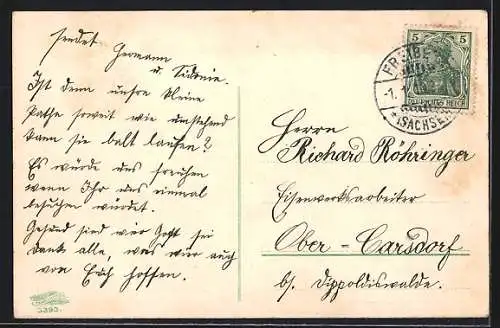 sendet Hermann
u. Sidonie.
Ist denn unsre kleine
Pathe soweit wie umstehend
kann sie balt laufen?
Es würde uns freuhen
wenn Ihr uns einmal
besuchen würdet.
Gesund sind wir Gott sei
dank alle, was wir auch
von Euch hoffen.
3393.
5 5
DEUTSCHES REICH
FREIBE
(SACHSE
Herrn
Richard Röhringer
Eisenwerksarbeiter
Ober-Carsdorf
b/. Dippoldiswalde.